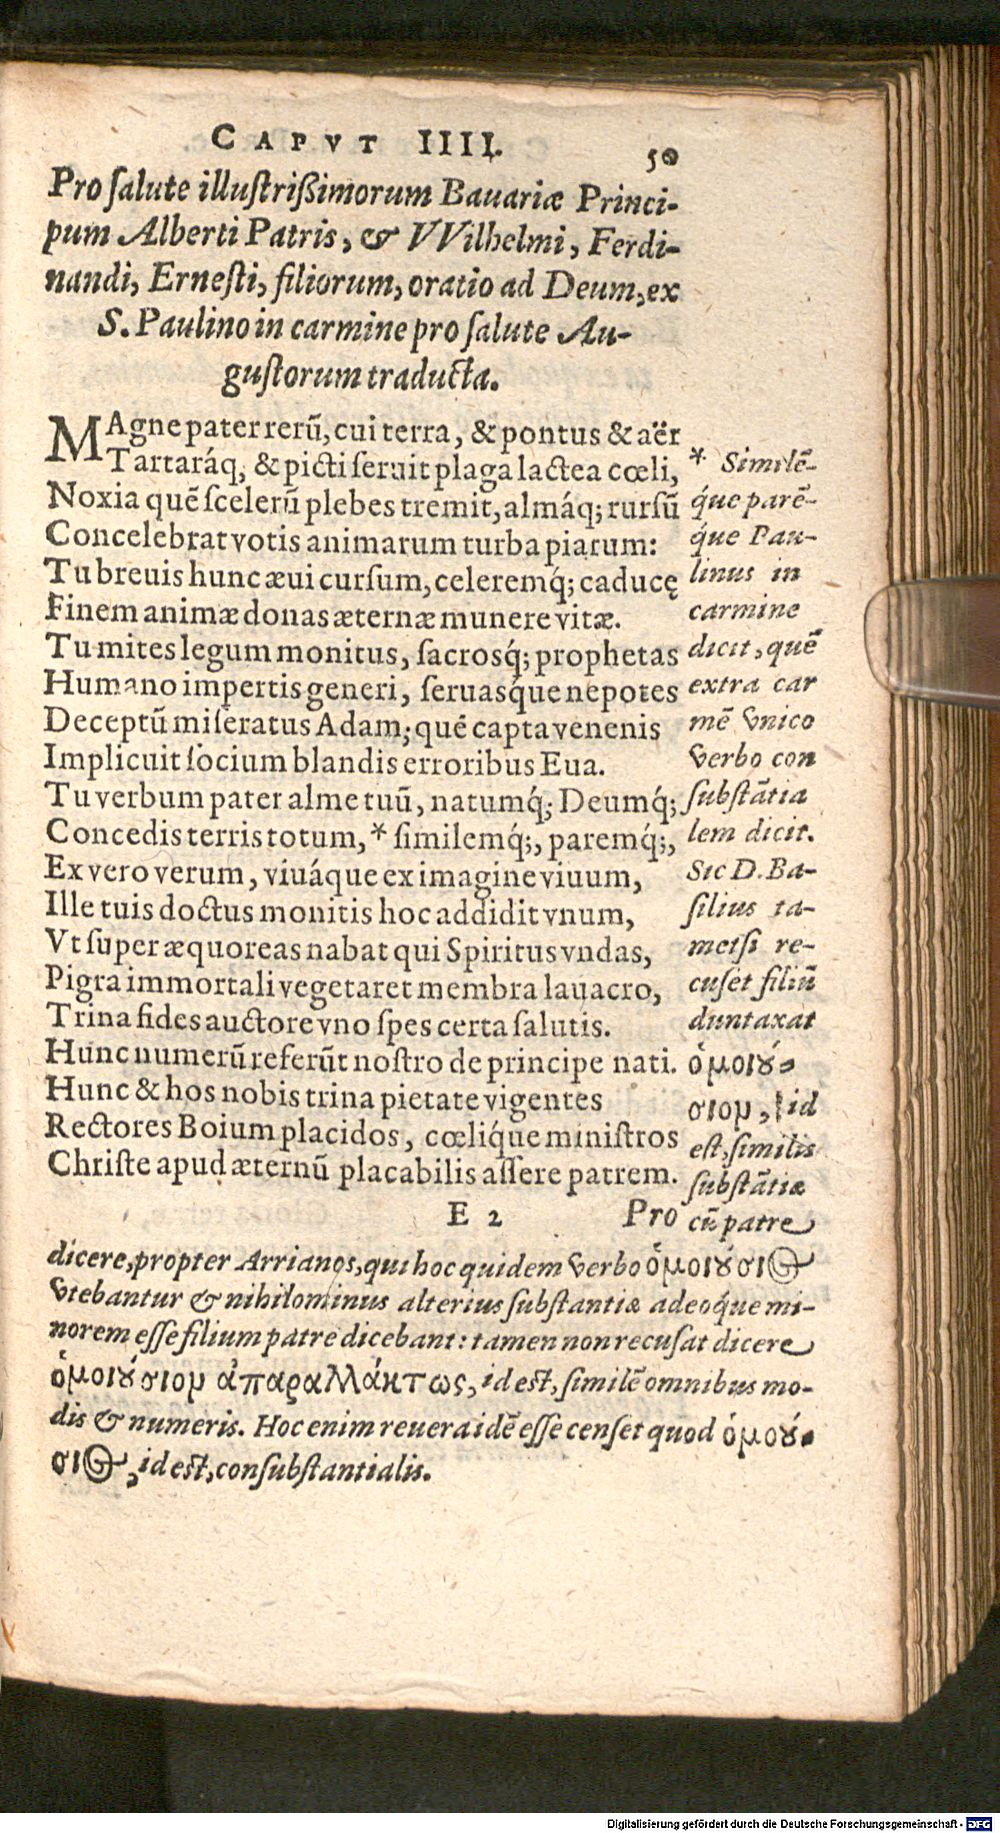 CAPVT IIII.
50
Pro ſalute illuſtriſſimorum Bauariæ Princi-
pum Alberti Patris, & VVilhelmi, Ferdi-
nandi, Erneſti, filiorum, oratio ad Deum, ex
S. Paulino in carmine pro ſalute Au-
guſtorum traducta.
MAgne pater rerũ, cui terra, & pontus & aër
Tartaráq, & picti ſeruit plaga lactea cœli,
Noxia quẽ ſcelerũ plebes tremit, almáq; rurſũ
Concelebrat votis animarum turba piarum:
Tu breuis hunc æui curſum, celeremq́; caducę
Finem animæ donas æternæ munere vitæ.
Tu mites legum monitus, ſacrosq́; prophetas
Humano impertis generi, ſeruasq́ue nepotes
Deceptũ miſeratus Adam; quẽ capta venenis
Implicuit ſocium blandis erroribus Eua.
Tu verbum pater alme tuũ, natumq́; Deumq́;
Concedis terris totum, * ſimilemq́;, paremq́;,
Ex vero verum, viuáque ex imagine viuum,
Ille tuis doctus monitis hoc addidit vnum,
Vt ſuper æquoreas nabat qui Spiritus vndas,
Pigra immortali vegetaret membra lauacro,
Trina fides auctore vno ſpes certa ſalutis.
Hunc numerũ referũt noſtro de principe nati.
Hunc & hos nobis trina pietate vigentes
Rectores Boium placidos, cœliq́ue miniſtros
Chriſte apud æternũ placabilis aſſere patrem.
E 2 Pro
* Similẽ-
q́ue parẽ-
q́ue Pau-
linus in
carmine
dicit, quẽ
extra car
mẽ vnico
verbo con
ſubſtãtia
lem dicit.
Sic D. Ba-
ſilius ta-
metſi re-
cuſet filiũ
duntaxat
ὁμοιȣ́-
σιον, id
eſt, ſimilis
ſubſtãtiæ
cũ patre
dicere, propter Arrianos, qui hoc quidem verbo ὁμοιȣ́σιος
vtebantur & nihilominus alterius ſubſtantiæ adeoq́ue mi-
norem eſſe filium patre dicebant: tamen non recuſat dicere
ὁμοιȣ́σιον ἀπαραλλάκτως, id eſt, ſimilẽ omnibus mo-
dis & numeris. Hoc enim reuera idẽ eſſe cenſet quod ὁμοȣ́-
σιος, id eſt, conſubſtantialis.
Digitalisierung gefördert durch die Deutsche Forschungsgemeinschaft - DFG